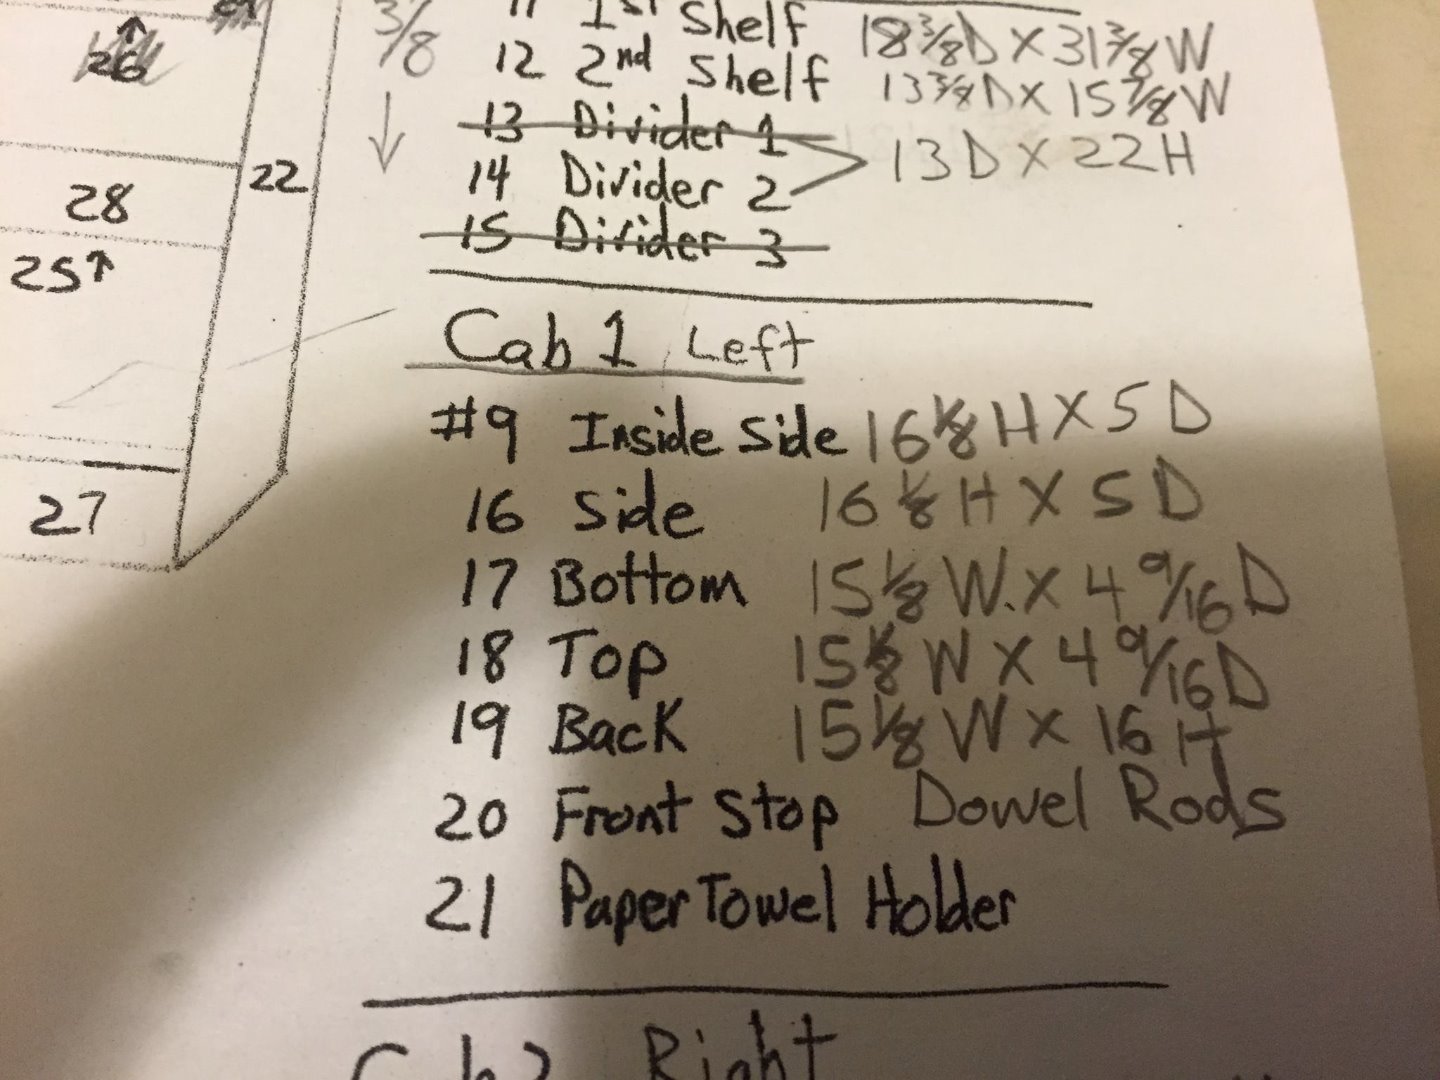 26
28
25
27
22
3/8
11 1st Shelf 18 3/8 D X 31 3/8 W
12 2nd Shelf 13 3/8 D X 15 7/8 W
13 Divider 1
14 Divider 2 13 D X 22 H
15 Divider 3
Cab 1 Left
#9 Inside Side 16 1/8 H X 5 D
16 Side 16 1/8 H X 5 D
17 Bottom 15 1/8 W. X 4 9/16 D
18 Top 15 1/8 W X 4 9/16 D
19 Back 15 1/8 W X 16 H
20 Front Stop Dowel Rods
21 Paper Towel Holder
Cab 2 Right